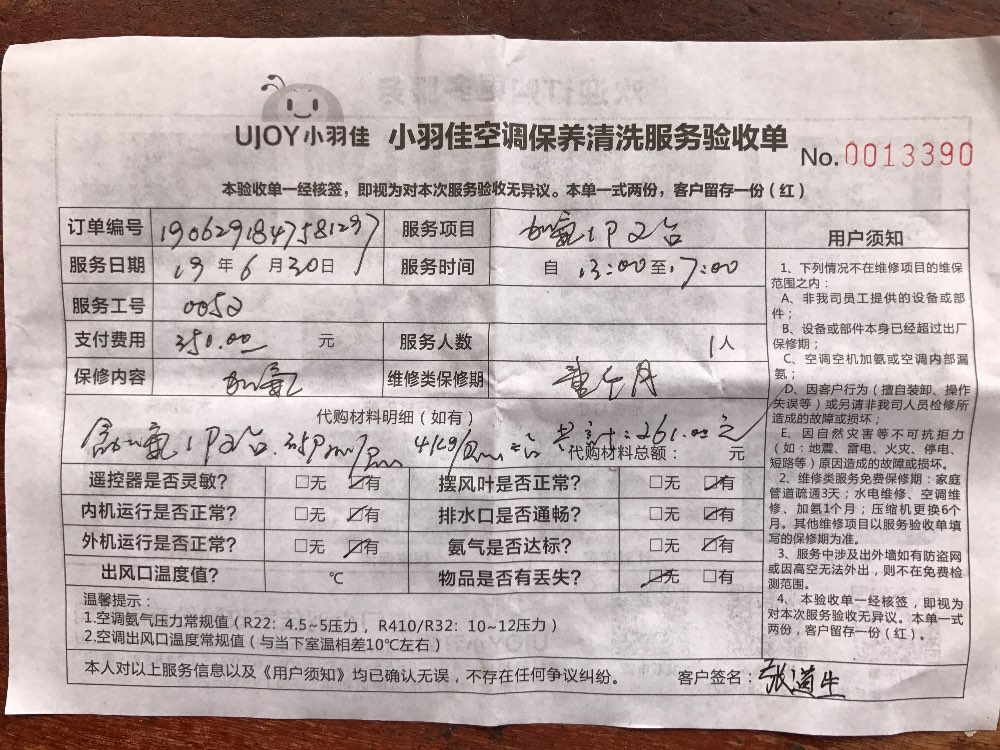 UJOY小羽佳 小羽佳空调保养清洗服务验收单
No.0013390
本验收单一经核签，即视为对本次服务验收无异议。本单一式两份，客户留存一份（红）
订单编号 1906291847581297 服务项目 加氨1P2台
服务日期 19年6月30日 服务时间 自13:00至17:00
服务工号 0052
支付费用 350.00元 服务人数 1人
保修内容 加氨 维修类保修期
代购材料明细（如有）
加氨1P2台
261.00元
代购材料总额： 元
遥控器是否灵敏? □无 ☑有 摆风叶是否正常? □无 ☑有
内机运行是否正常? □无 ☑有 排水口是否通畅? □无 ☑有
外机运行是否正常? □无 ☑有 氨气是否达标? □无 ☑有
出风口温度值? ℃ 物品是否有丢失? ☑无 □有
温馨提示：
1.空调氨气压力常规值（R22: 4.5~5压力 , R410/R32: 10~12压力）
2.空调出风口温度常规值（与当下室温相差10℃左右）
本人对以上服务信息以及《用户须知》均已确认无误，不存在任何争议纠纷。 客户签名：张道生
用户须知
1、下列情况不在维修项目的维保
范围之内：
A、非我司员工提供的设备或部
件；
B、设备或部件本身已经超过出厂
保修期；
C、空调空机加氨或空调内部漏
氨；
D、因客户行为（擅自装卸、操作
失误等）或另请非我司人员检修所
造成的故障或损坏；
E、因自然灾害等不可抗拒力
（如：地震、雷电、火灾、停电、
短路等）原因造成的故障或损坏。
2、维修类服务免费保修期：家庭
管道疏通3天；水电维修、空调维
修、加氨1个月；压缩机更换6个
月。其他维修项目以服务验收单填
写的保修期为准。
3、服务中涉及出外墙如有防盗网
或因高空无法外出，则不在免费检
测范围。
4、本验收单一经核签，即视为
对本次服务验收无异议。本单一式
两份，客户留存一份（红）。